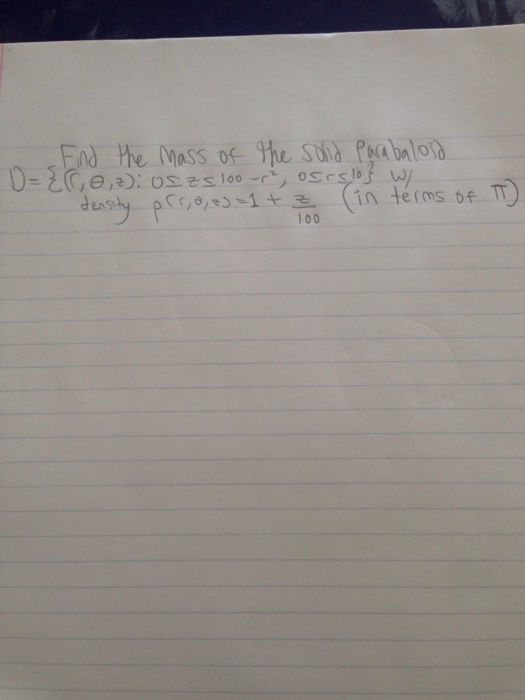 Find the Mass of the solid Parabaloid
D = {(r, θ, z): 0 ≤ z ≤ 100 - r², 0 ≤ r ≤ 10} w/
density p(r, θ, z) = 1 + z/100 (in terms of π)